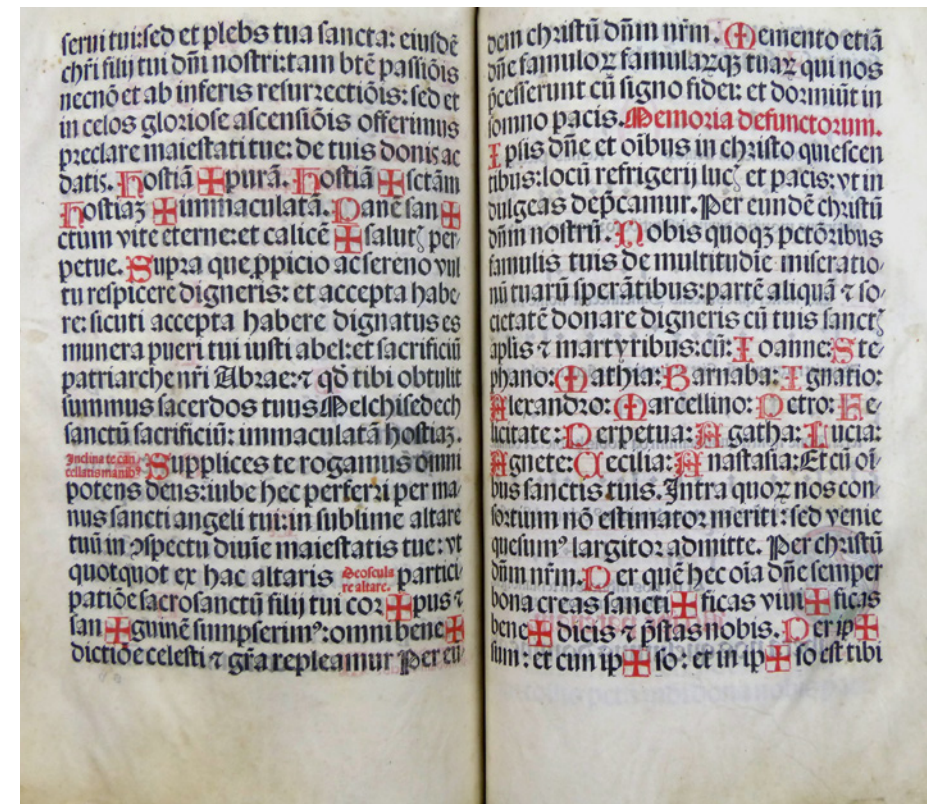 serui tui:sed et plebs tua sancta: eiusdē
chr̄i filij tui dn̄i nostri:tam btē passiōis
necnō et ab inferis resurꝛectiōis:sed et
in celos gloriose ascensiōis offerimus
preclare maiestati tue: de tuis donis ac
datis. Hostiā ✠ purā. Hostiā ✠ sctām
Hostiaꝫ ✠ immaculatā. Panē san ✠
ctum vite eterne:et calicē ✠ salutꝭ per/
petue. Supra que ꝓpicio ac sereno vul
tu respicere digneris: et accepta habe/
re: sicuti accepta habere dignatus es
munera pueri tui iusti abel:et sacrificiū
patriarche nr̄i Abrae:⁊ qd̄ tibi obtulit
summus sacerdos tuus Melchisedech
sanctū sacrificiū: immaculatā hostiaꝫ.
Inclina te can/
cellatis manibꝰ Supplices te rogamus omni
potens deus:iube hec perferri per ma/
nus sancti angeli tui:in sublime altare
tuū in ↄspectu diuie maiestatis tue: vt
quotquot ex hac altaris Deoscula
re altare. partici/
patiōe sacrosanctū filij tui cor ✠ pus ⁊
san ✠ guinē sumpserimꝰ: omni bene ✠
dictiōe celesti ⁊ gr̄a repleamur Per eū/
dem christū dn̄m nr̄m. Memento etiā
dn̄e famuloꝝ famularꝝqꝫ tuaꝝ qui nos
p̄cesserunt cū signo fidei: et dormiūt in
somno pacis. Memoria defunctorum.
Ipsis dn̄e et oībus in christo quiescen
tibus:locū refrigerij lucꝭ et pacis: vt in
dulgeas dep̄camur. Per eundē christū
dn̄m nostrū. Nobis quoqꝫ pctōribus
famulis tuis de multitudīe miseratio/
nū tuarū sperātibus:partē aliquā ⁊ so/
cietatē donare digneris cū tuis sanctꝭ
aplis ⁊ martyribus:cū: Ioanne: Ste/
phano: Mathia: Barnaba: Ignatio:
Alexandro: Marcellino: Petro: Fe/
licitate: Perpetua: Agatha: Lucia:
Agnete: Cecilia: Anastasia: Et cū oī/
bus sanctis tuis. Intra quoꝝ nos con/
sortium nō estimator meriti: sed venie
quesumꝰ largitor admitte. Per christū
dn̄m nr̄m. Per quē hec oīa dn̄e semper
bona creas sancti ✠ ficas viui ✠ ficas
bene ✠ dicis ⁊ p̄stas nobis. Per ip ✠
sum: et cum ip ✠ so: et in ip ✠ so est tibi